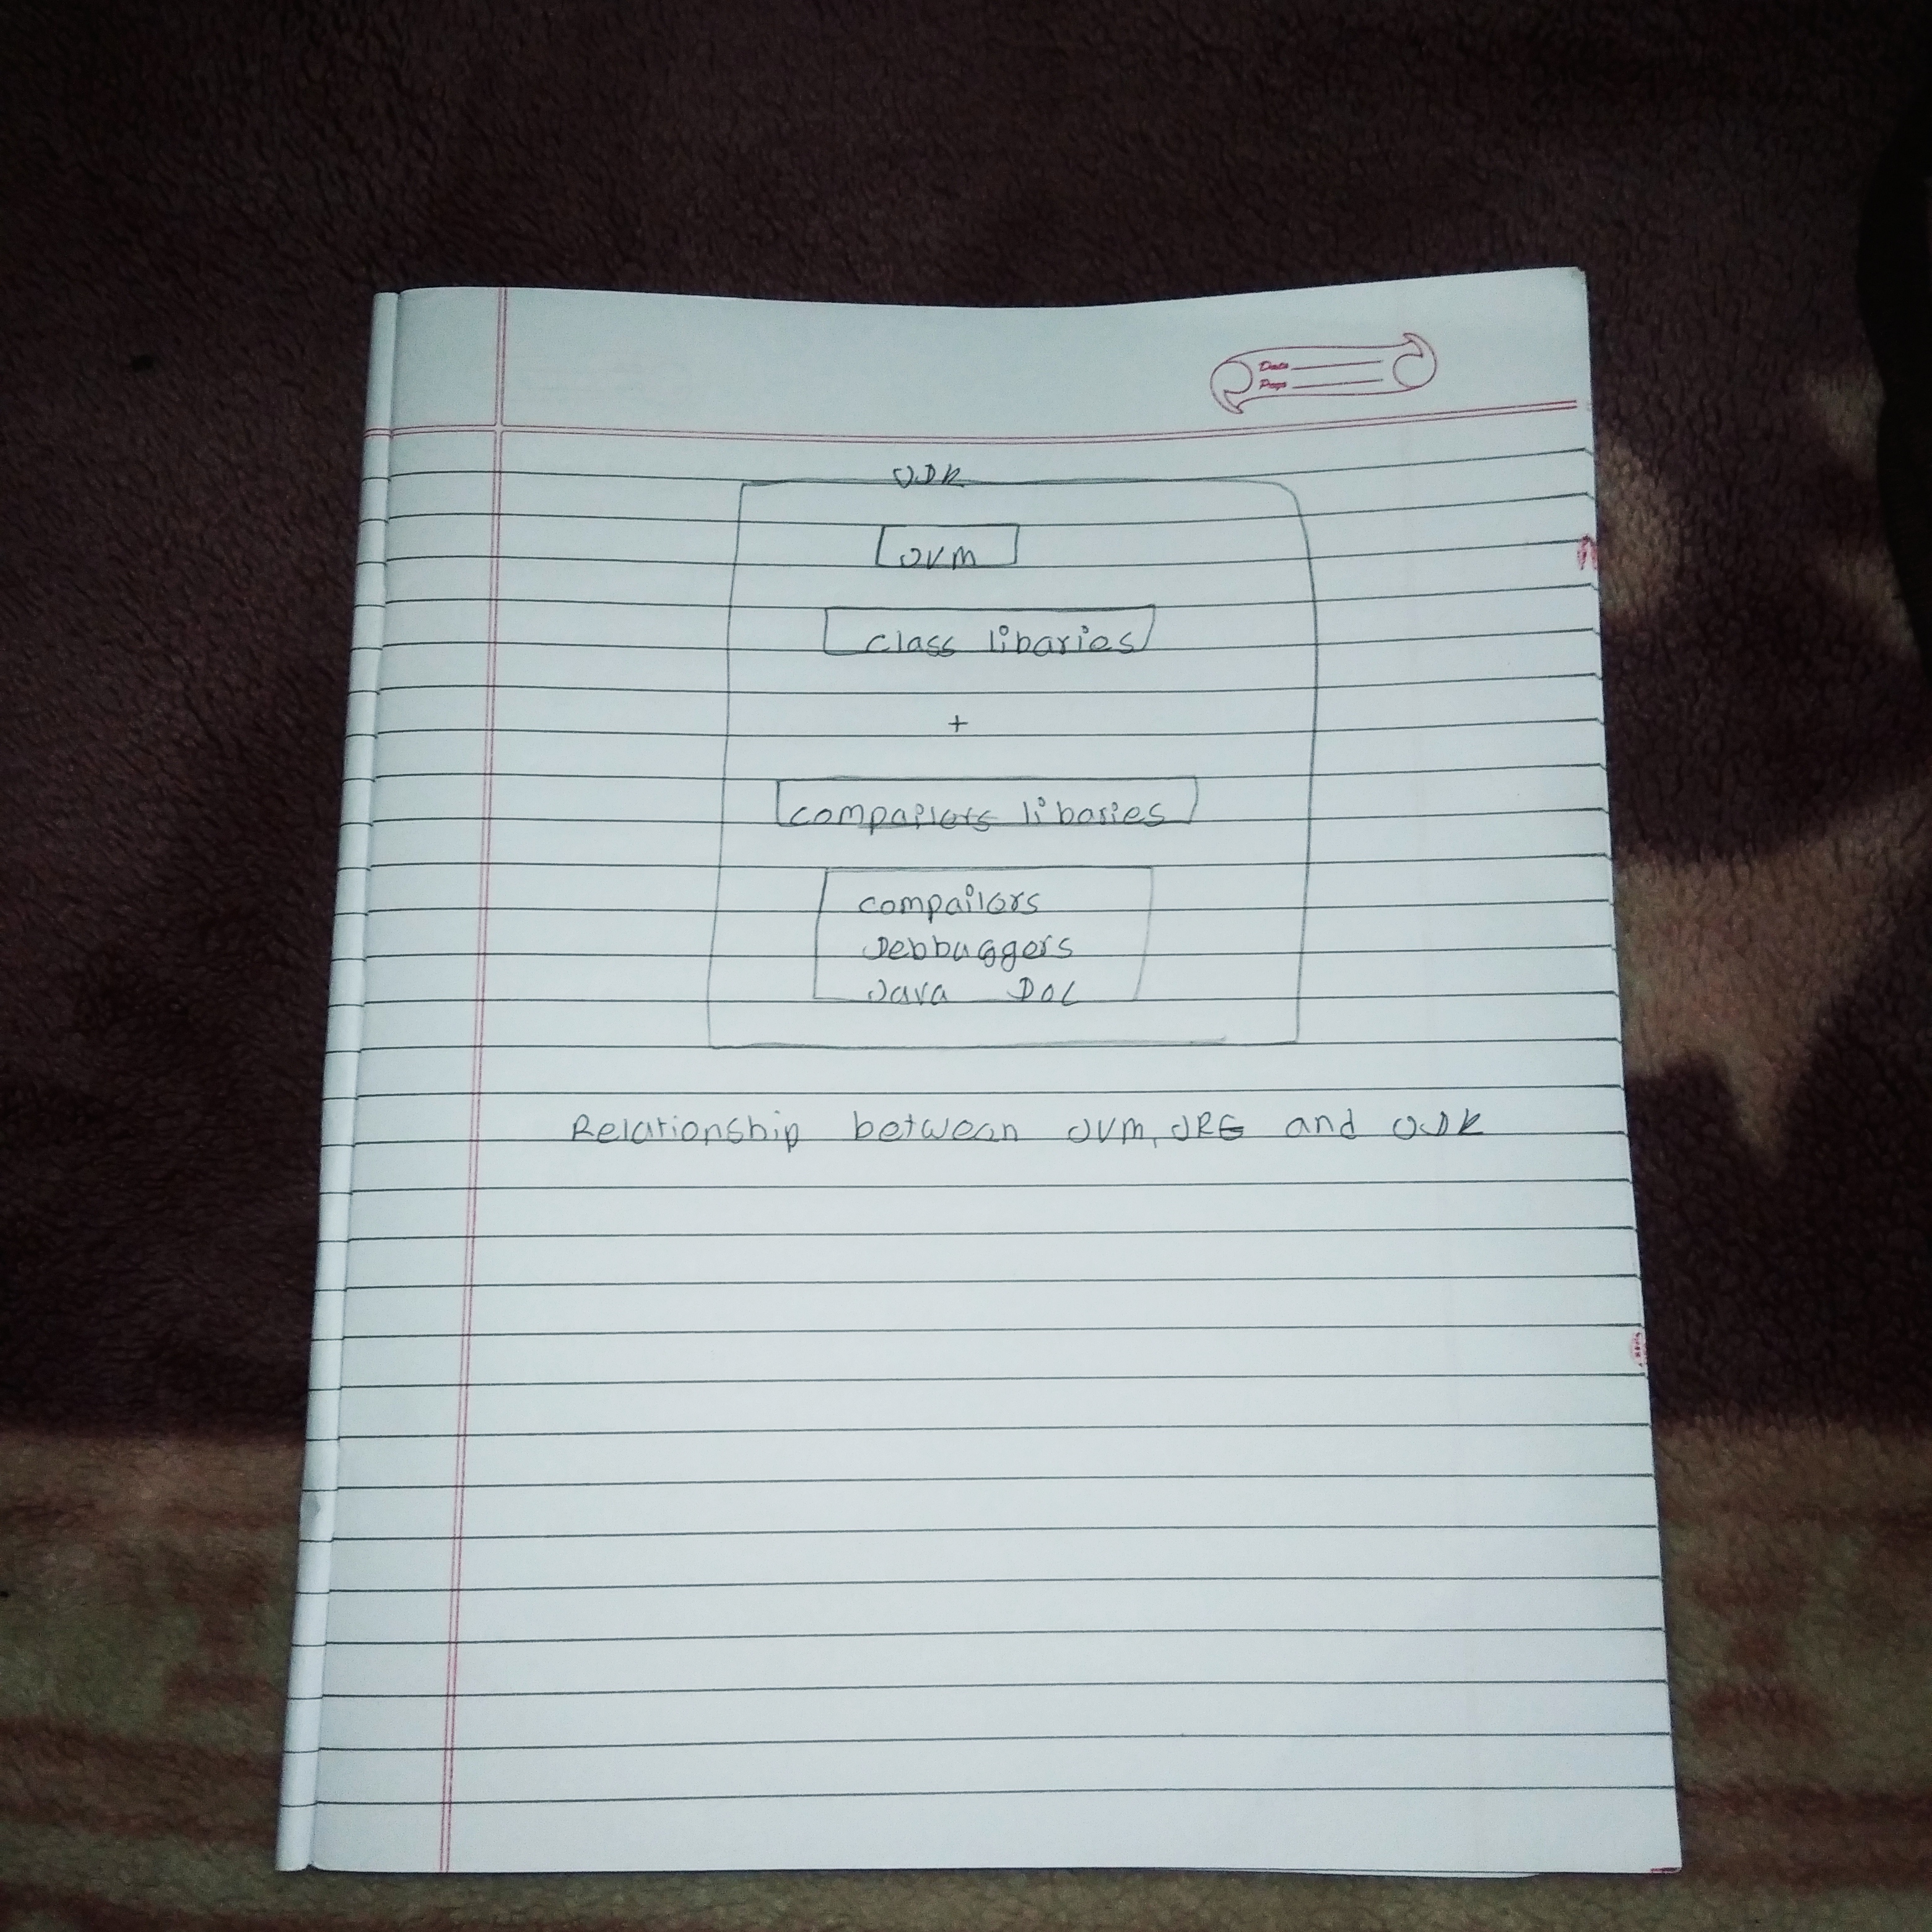 Date
Page
JDK
JVM
class libaries
+
compailers libaries
compailers
Debbuggers
Java Doc
Relationship between JVM, JRE and JDK